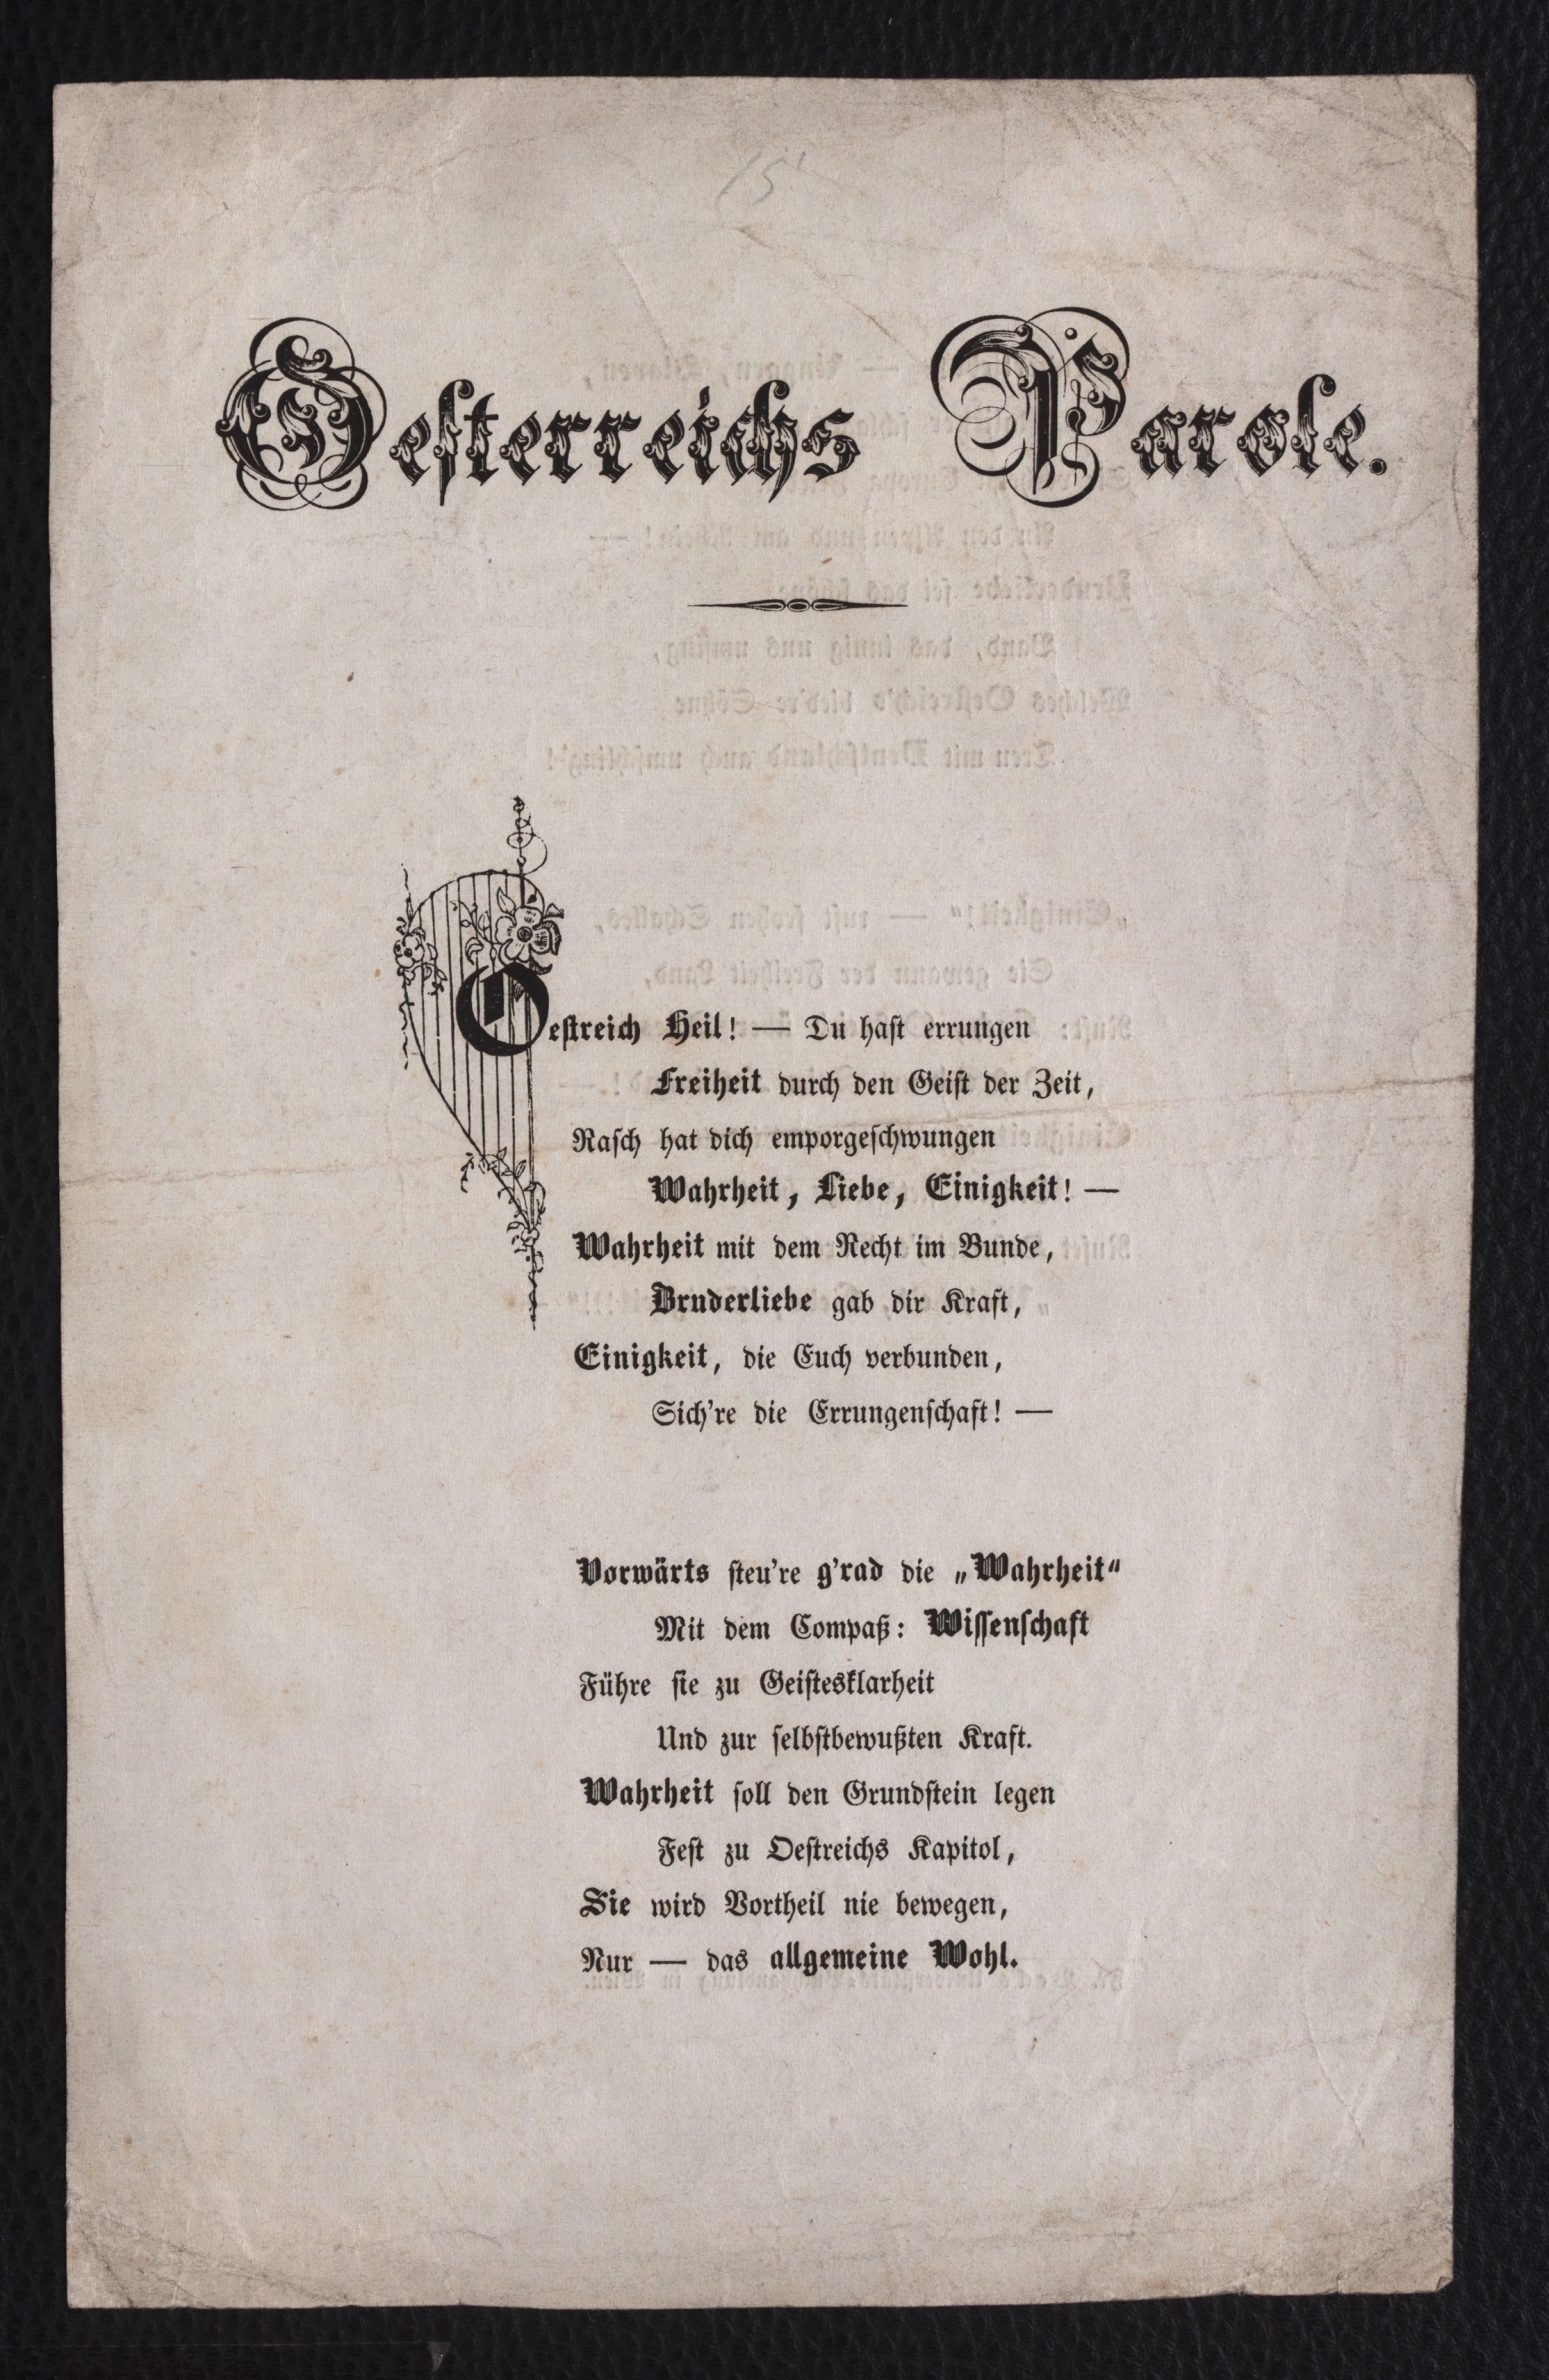 15
Oesterreichs Parole.
Oestreich Heil! — Du hast errungen
Freiheit durch den Geist der Zeit,
Rasch hat dich emporgeschwungen
Wahrheit, Liebe, Einigkeit! —
Wahrheit mit dem Recht im Bunde,
Bruderliebe gab dir Kraft,
Einigkeit, die Euch verbunden,
Sich're die Errungenschaft! —
Vorwärts steu're g'rad die „Wahrheit“
Mit dem Compaß: Wissenschaft
Führe sie zu Geistesklarheit
Und zur selbstbewußten Kraft.
Wahrheit soll den Grundstein legen
Fest zu Oestreichs Kapitol,
Sie wird Vortheil nie bewegen,
Nur — das allgemeine Wohl.